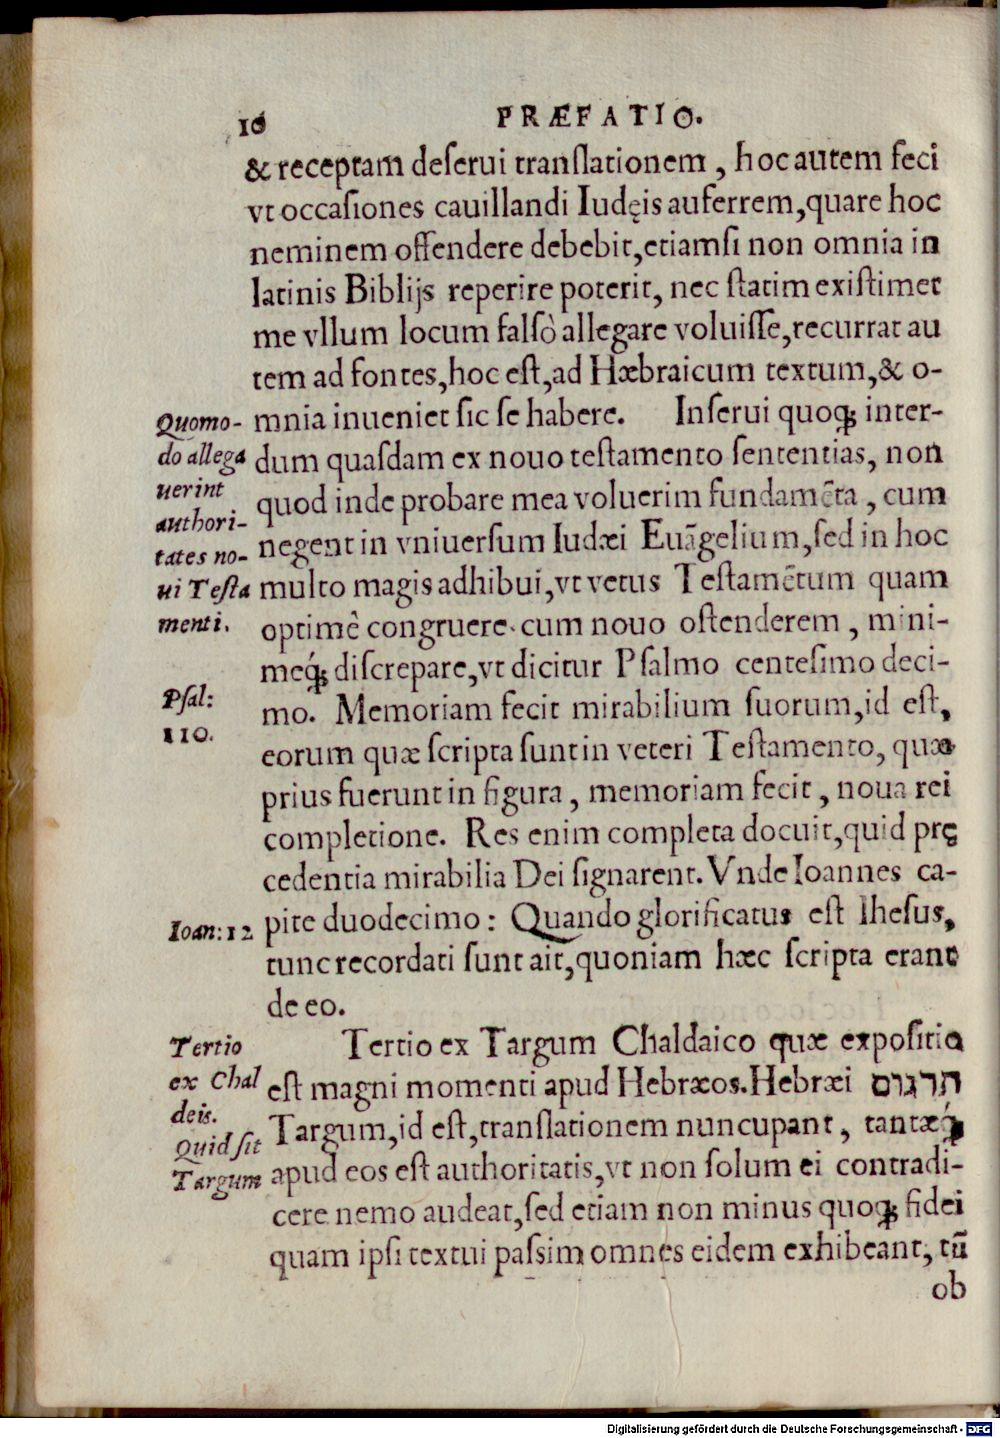 16 PRÆFATIO.
& receptam deſerui tranſlationem, hoc autem feci
vt occaſiones cauillandi Iudęis auferrem, quare hoc
neminem offendere debebit, etiamſi non omnia in
latinis Biblijs reperire poterit, nec ſtatim exiſtimet
me vllum locum falſò allegare voluiſſe, recurrat au
tem ad fontes, hoc eſt, ad Hæbraicum textum, & o-
mnia inueniet ſic ſe habere. Inſerui quoq́; inter-
dum quaſdam ex nouo teſtamento ſententias, non
quod inde probare mea voluerim fundamẽta, cum
negent in vniuerſum Iudæi Euãgelium, ſed in hoc
multo magis adhibui, vt vetus Teſtamẽtum quam
optimè congruere cum nouo oſtenderem, mini-
meq́; diſcrepare, vt dicitur Pſalmo centeſimo deci-
mo. Memoriam fecit mirabilium ſuorum, id eſt,
eorum quæ ſcripta ſunt in veteri Teſtamento, quæ
prius fuerunt in figura, memoriam fecit, noua rei
completione. Res enim completa docuit, quid prę
cedentia mirabilia Dei ſignarent. Vnde Ioannes ca-
pite duodecimo: Quando glorificatus eſt Iheſus,
tunc recordati ſunt ait, quoniam hæc ſcripta erant
de eo.
Tertio ex Targum Chaldaico quæ expoſitio
eſt magni momenti apud Hebræos. Hebræi תרגום
Targum, id eſt, tranſlationem nuncupant, tantæq́;
apud eos eſt authoritatis, vt non ſolum ei contradi-
cere nemo audeat, ſed etiam non minus quoq́; fidei
quam ipſi textui paſsim omnes eidem exhibeant, tũ
ob
Quomo-
do allega
uerint
authori-
tates no-
ui Teſta
menti.
Pſal:
110.
Ioan: 12
Tertio
ex Chal
deis.
Quid ſit
Targum
Digitalisierung gefördert durch die Deutsche Forschungsgemeinschaft - DFG